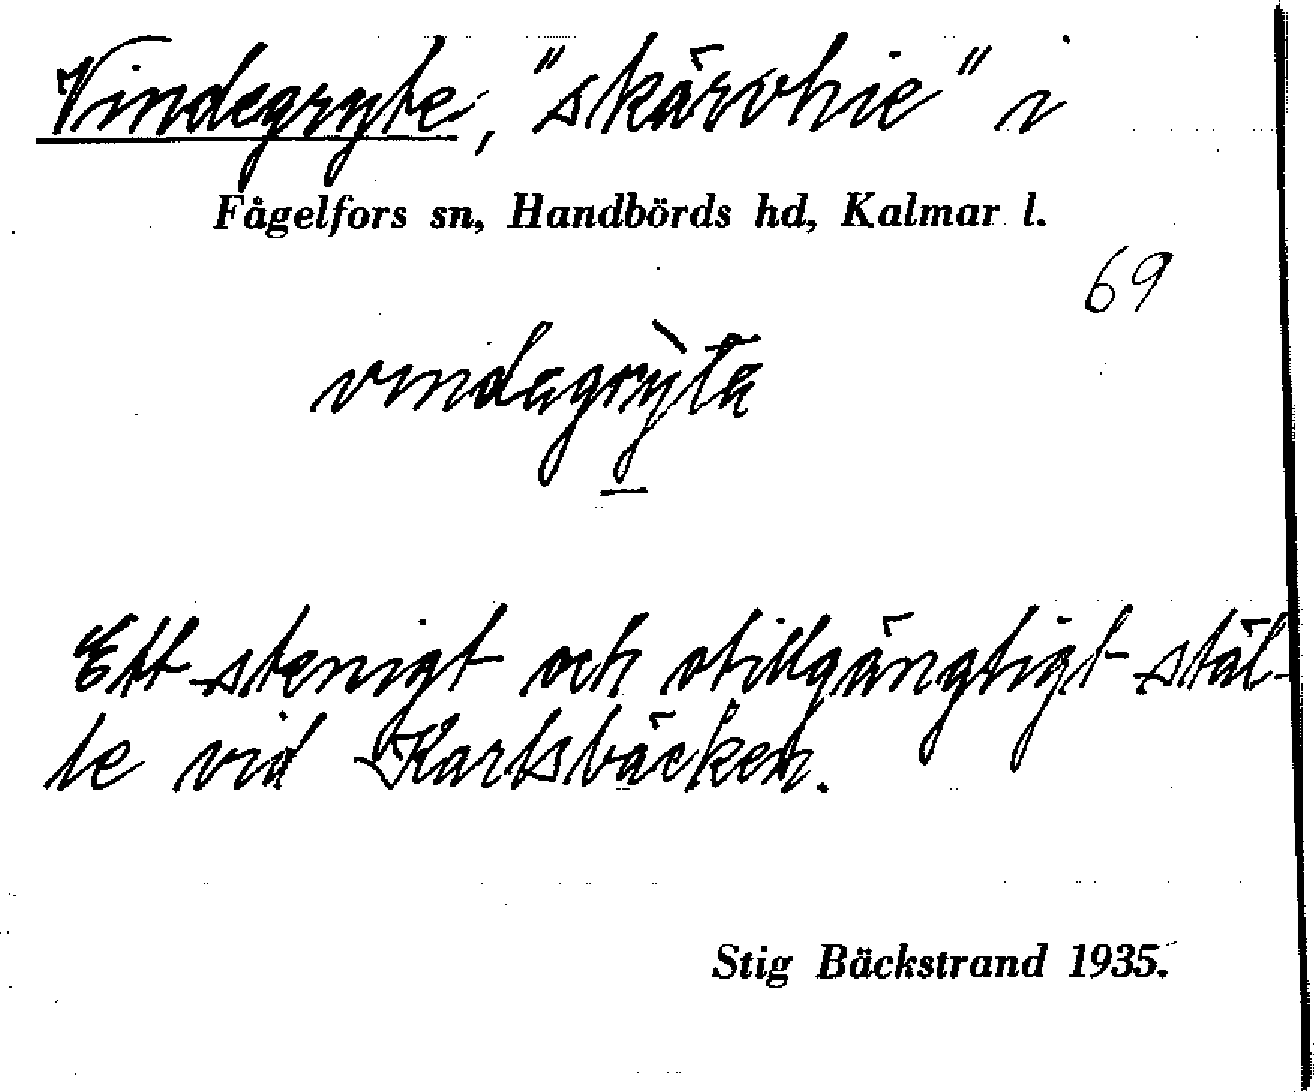 Vindegryte, "skärvhie" i
Fågelfors sn, Handbörds hd, Kalmar l.
69
vindagrỳta
Ett stenigt och otillgängligt stäl-
le vid Karlsbäcken.
Stig Bäckstrand 1935.